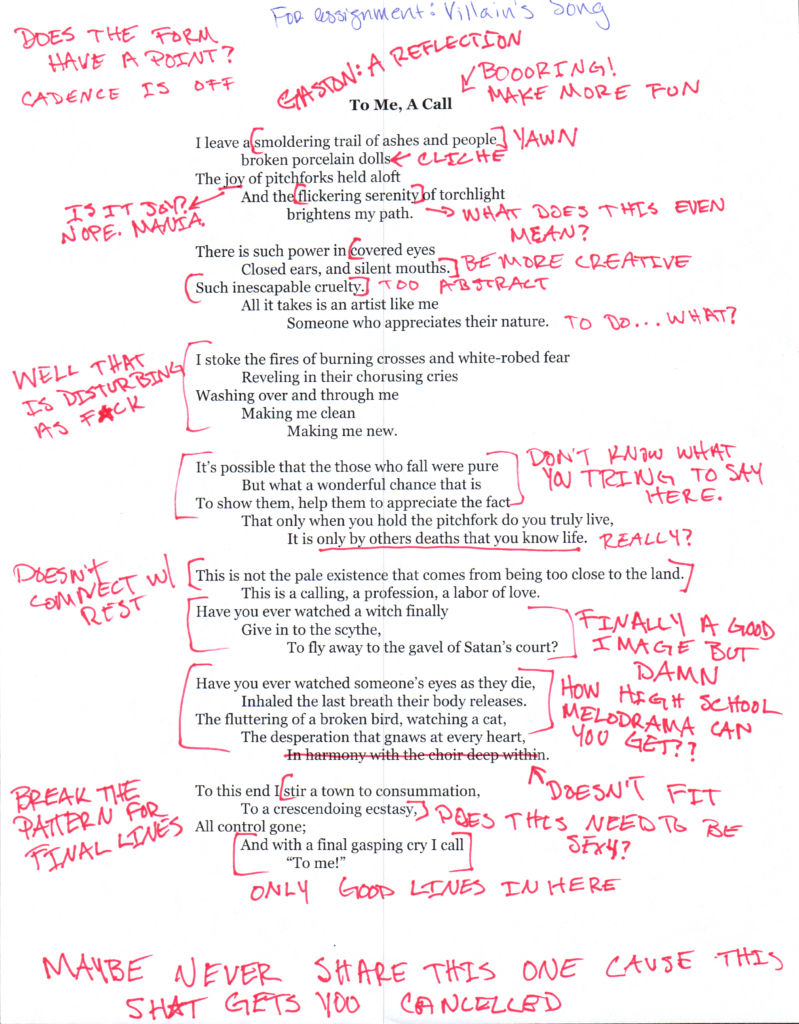 For assignment: Villain's Song
DOES THE FORM
HAVE A POINT?
CADENCE IS OFF
GASTON: A REFLECTION
BOOORING!
MAKE MORE FUN
To Me, A Call
I leave a smoldering trail of ashes and people
YAWN
broken porcelain dolls
CLICHE
The joy of pitchforks held aloft
And the flickering serenity of torchlight
brightens my path.
IS IT JOY?
NOPE. MANIA.
WHAT DOES THIS EVEN
MEAN?
There is such power in covered eyes
Closed ears, and silent mouths.
BE MORE CREATIVE
Such inescapable cruelty.
TOO ABSTRACT
All it takes is an artist like me
Someone who appreciates their nature.
TO DO... WHAT?
I stoke the fires of burning crosses and white-robed fear
Reveling in their chorusing cries
Washing over and through me
Making me clean
Making me new.
WELL THAT
IS DISTURBING
AS F*CK
It's possible that the those who fall were pure
But what a wonderful chance that is
To show them, help them to appreciate the fact
That only when you hold the pitchfork do you truly live,
It is only by others deaths that you know life.
DON'T KNOW WHAT
YOU TRING TO SAY
HERE.
REALLY?
This is not the pale existence that comes from being too close to the land.
This is a calling, a profession, a labor of love.
DOESN'T
CONNECT W/
REST
Have you ever watched a witch finally
Give in to the scythe,
To fly away to the gavel of Satan's court?
FINALLY A GOOD
IMAGE BUT
DAMN
HOW HIGH SCHOOL
MELODRAMA CAN
YOU GET??
Have you ever watched someone's eyes as they die,
Inhaled the last breath their body releases.
The fluttering of a broken bird, watching a cat,
The desperation that gnaws at every heart,
In harmony with the choir deep within.
DOESN'T FIT
To this end I stir a town to consummation,
To a crescendoing ecstasy,
DOES THIS NEED TO BE
SEXY?
All control gone;
And with a final gasping cry I call
"To me!"
BREAK THE
PATTERN FOR
FINAL LINES
ONLY GOOD LINES IN HERE
MAYBE NEVER SHARE THIS ONE CAUSE THIS
SH*T GETS YOU CANCELLED